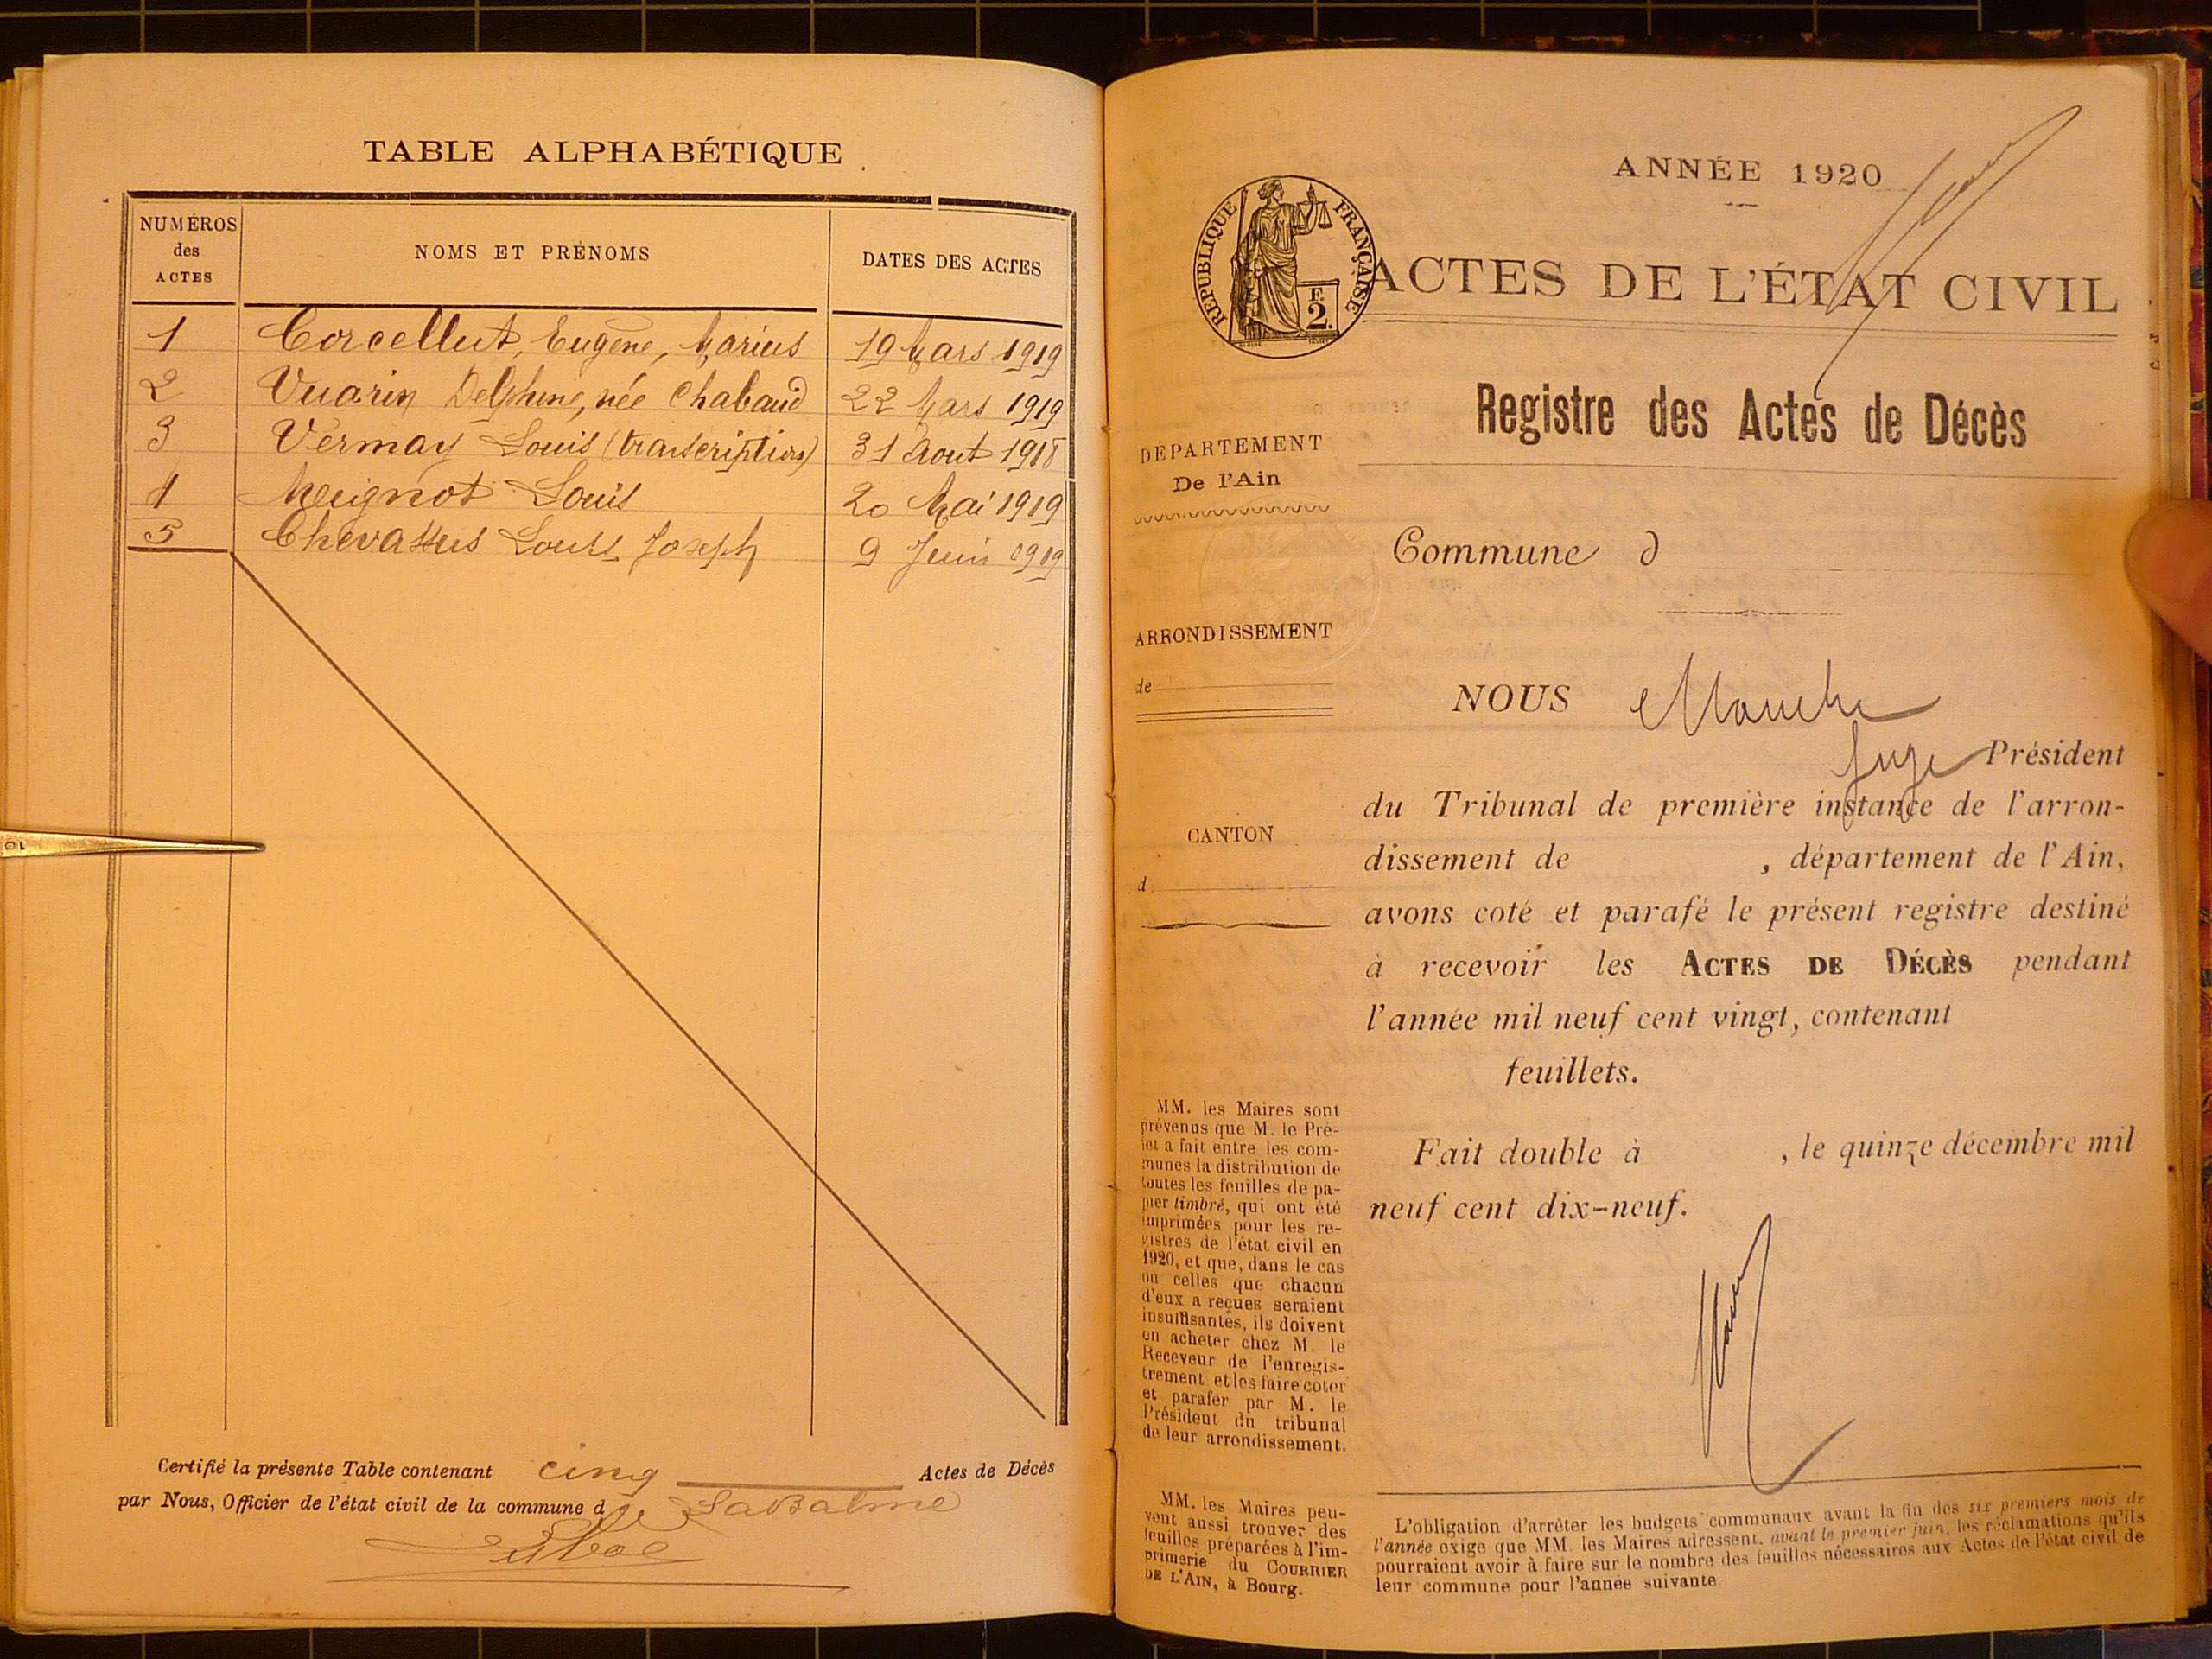 TABLE ALPHABÉTIQUE
NUMÉROS
des
ACTES
NOMS ET PRÉNOMS
DATES DES ACTES
1 Corcellut, Eugène, Marius 19 Mars 1919
2 Vuarin Delphine, née Chabaud 22 Mars 1919
3 Vermay Louis (transcription) 31 Aout 1918
4 Meignot Louis 20 Mai 1919
5 Chevassus Louis Joseph 9 Juin 1919
Certifié la présente Table contenant cinq Actes de Décès
par Nous, Officier de l'état civil de la commune de LaBalme
ANNÉE 1920
RÉPUBLIQUE FRANÇAISE
F.
2.
ACTES DE L'ÉTAT CIVIL
Registre des Actes de Décès
DÉPARTEMENT
De l'Ain
Commune d
ARRONDISSEMENT
de
NOUS
Juge Président
du Tribunal de première instance de l'arron-
dissement de , département de l'Ain,
avons coté et parafé le présent registre destiné
à recevoir les ACTES DE DÉCÈS pendant
l'année mil neuf cent vingt, contenant
feuillets.
CANTON
d
Fait double à , le quinze décembre mil
neuf cent dix-neuf.
MM. les Maires sont
prévenus que M. le Pré-
fet a fait entre les com-
munes la distribution de
toutes les feuilles de pa-
pier timbré, qui ont été
imprimées pour les re-
gistres de l'état civil en
1920, et que, dans le cas
où celles que chacun
d'eux a reçues seraient
insuffisantes, ils doivent
en acheter chez M. le
Receveur de l'enregis-
trement et les faire coter
et parafer par M. le
Président du tribunal
de leur arrondissement.
MM. les Maires peu-
vent aussi trouver des
feuilles préparées à l'im-
primerie du COURRIER
DE L'AIN, à Bourg.
L'obligation d'arrêter les budgets communaux avant la fin des six premiers mois de
l'année exige que MM. les Maires adressent, avant le premier juin, les réclamations qu'ils
pourraient avoir à faire sur le nombre des feuilles nécessaires aux Actes de l'état civil de
leur commune pour l'année suivante.